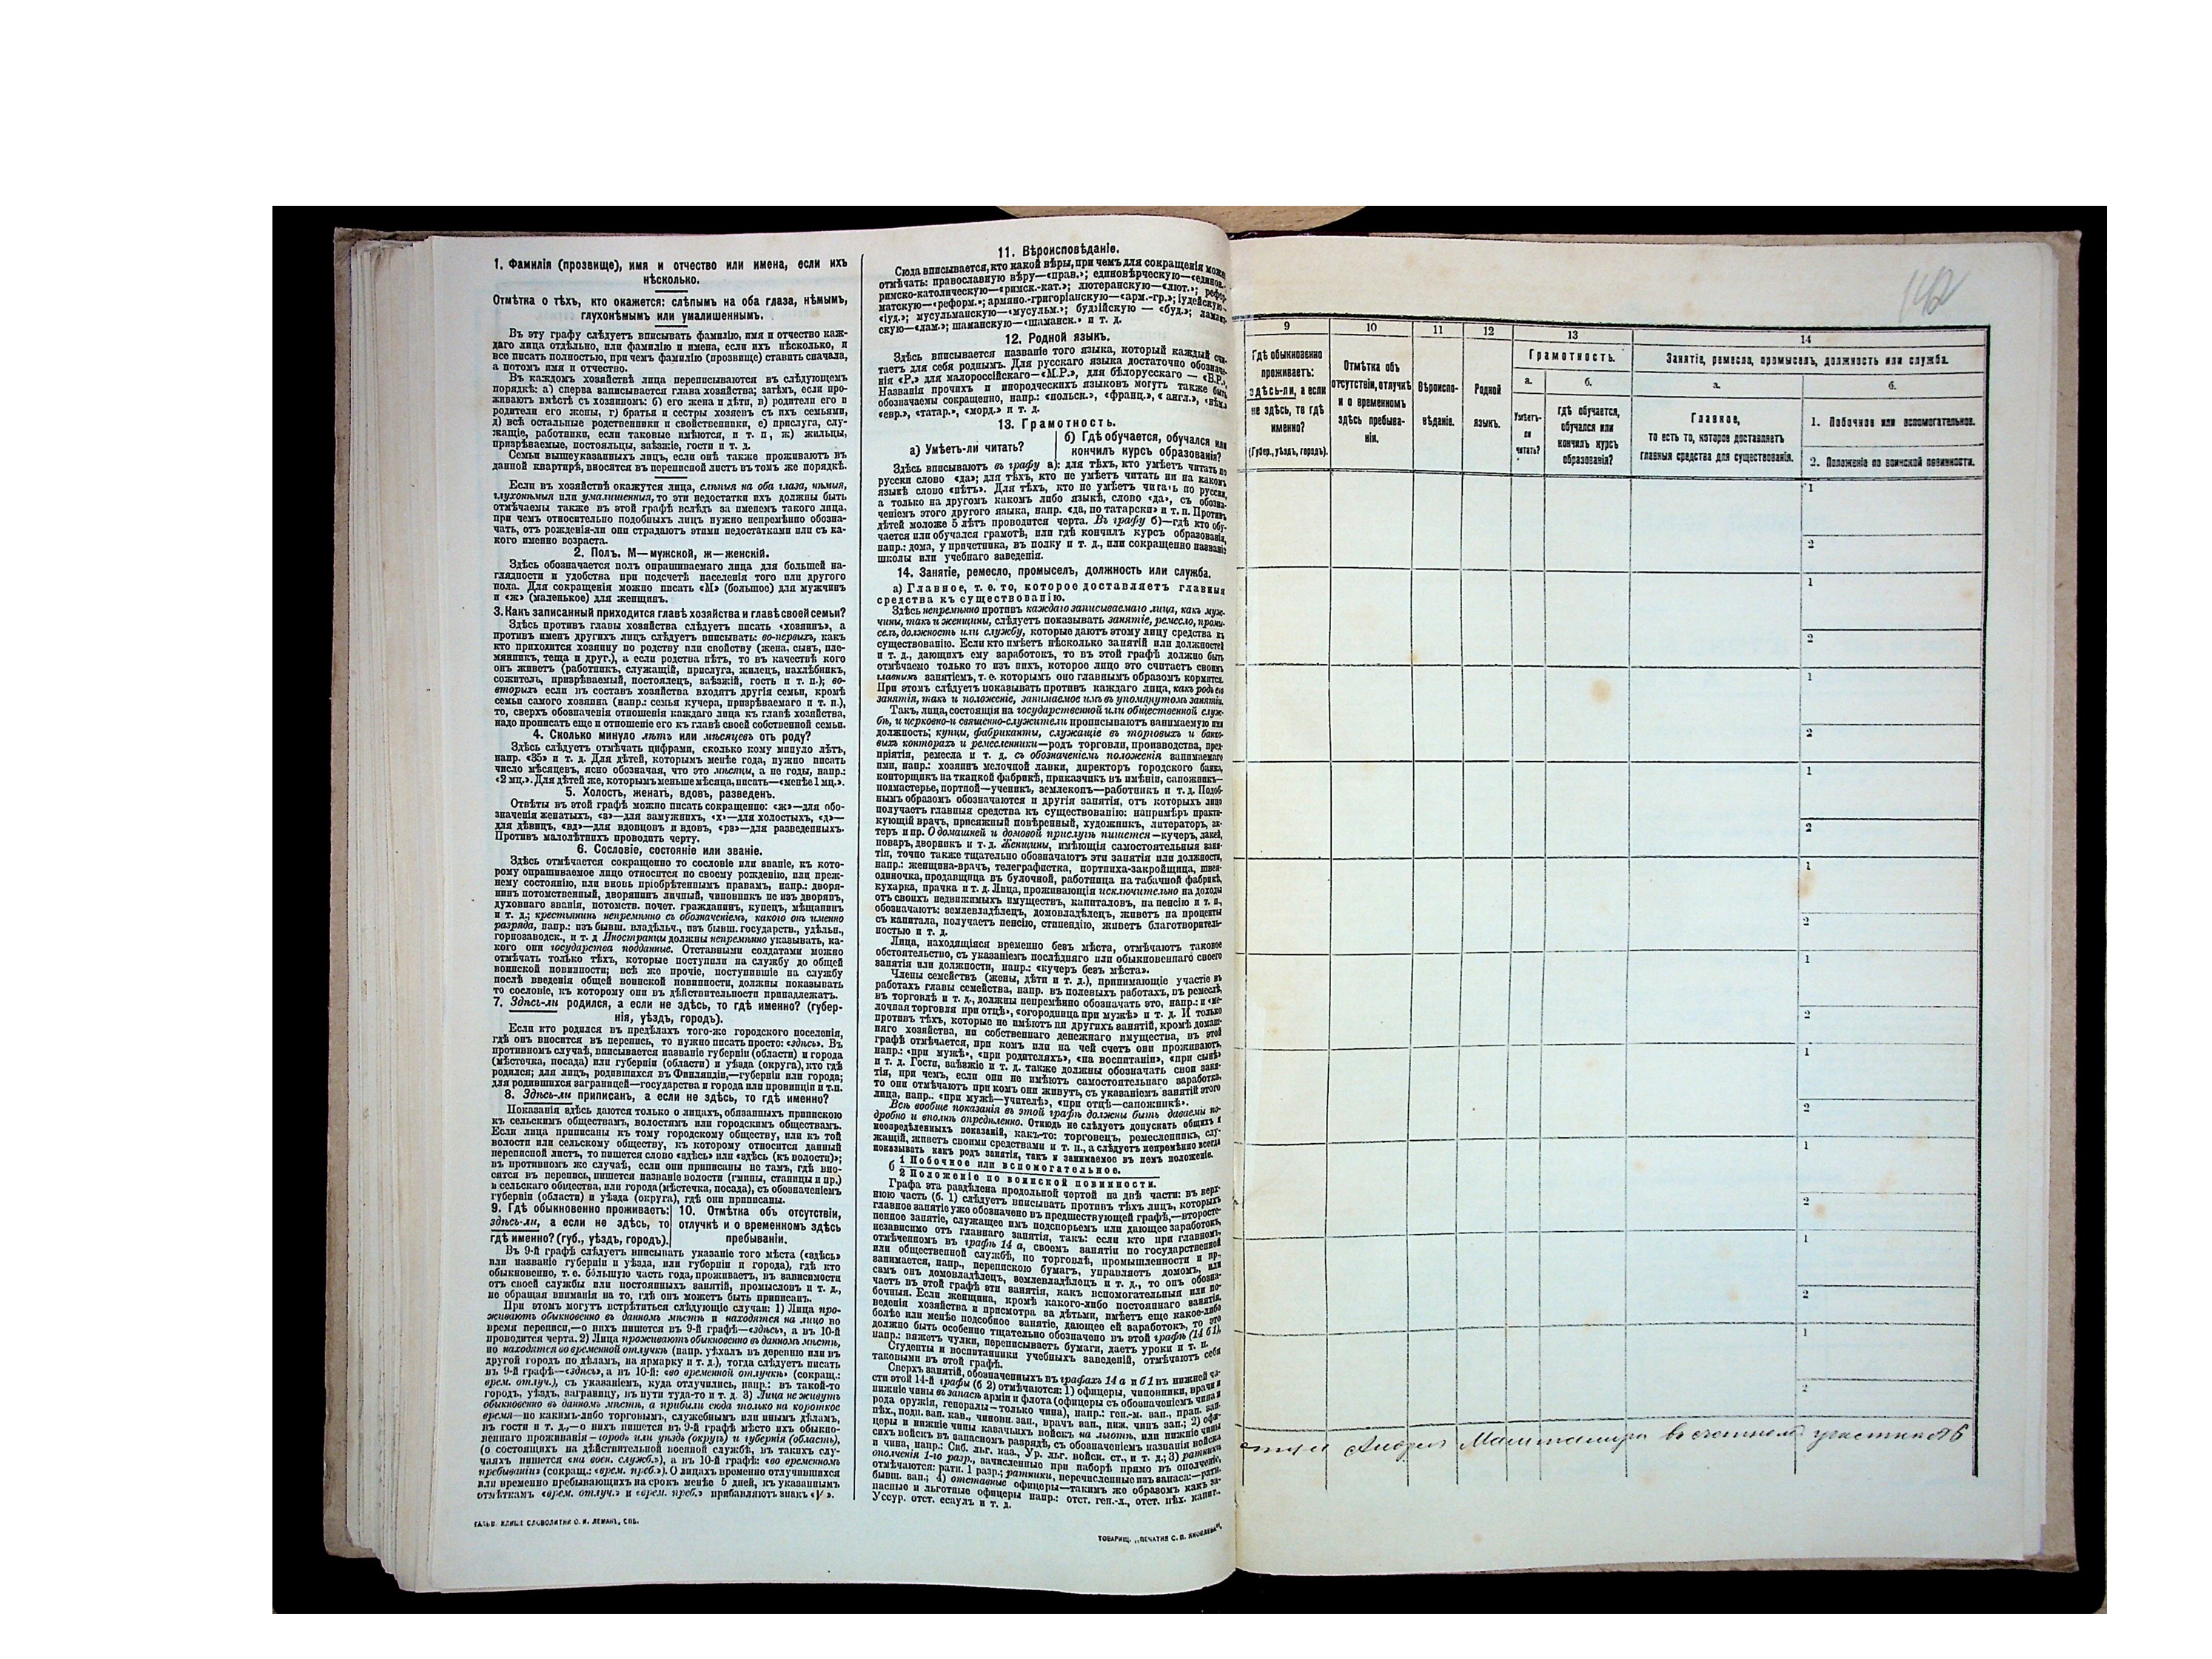 1. Фамилія (прозвище), имя и отчество или имена, если ихъ
нѣсколько.
Отмѣтка о тѣхъ, кто окажется: слѣпымъ на оба глаза, нѣмымъ,
глухонѣмымъ или умалишеннымъ.
Въ эту графу слѣдуетъ вписывать фамилію, имя и отчество каж-
даго лица отдѣльно, или фамилію и имена, если ихъ нѣсколько, и
все писать полностью, при чемъ фамилію (прозвище) ставить сначала,
а потомъ имя и отчество.
Въ каждомъ хозяйствѣ лица переписываются въ слѣдующемъ
порядкѣ: а) сперва записывается глава хозяйства; затѣмъ, если про-
живаютъ вмѣстѣ съ хозяиномъ: б) его жена и дѣти, в) родители его и
родители его жены, г) братья и сестры хозяевъ съ ихъ семьями,
д) всѣ остальные родственники и свойственники, е) прислуга, слу-
жащіе, работники, если таковые имѣются, и т. п., ж) жильцы,
призрѣваемые, постояльцы, заѣзжіе, гости и т. д.
Семьи вышеуказанныхъ лицъ, если онѣ также проживаютъ въ
данной квартирѣ, вносятся въ переписной листъ въ томъ же порядкѣ.
Если въ хозяйствѣ окажутся лица, слѣпыя на оба глаза, нѣмыя,
глухонѣмыя или умалишенныя, то эти недостатки ихъ должны быть
отмѣчаемы также въ этой графѣ вслѣдъ за именемъ такого лица,
при чемъ относительно подобныхъ лицъ нужно непремѣнно обозна-
чать, отъ рожденія-ли они страдаютъ этими недостатками или съ ка-
кого именно возраста.
2. Полъ. М—мужской, ж—женскій.
Здѣсь обозначается полъ опрашиваемаго лица для большей на-
глядности и удобства при подсчетѣ населенія того или другого
пола. Для сокращенія можно писать «М» (большое) для мужчинъ
и «ж» (маленькое) для женщинъ.
3. Какъ записанный приходится главѣ хозяйства и главѣ своей семьи?
Здѣсь противъ главы хозяйства слѣдуетъ писать «хозяинъ», а
противъ именъ другихъ лицъ слѣдуетъ вписывать: во-первыхъ, какъ
кто приходится хозяину по родству или свойству (жена, сынъ, пле-
мянникъ, теща и друг.), а если родства нѣтъ, то въ качествѣ кого
онъ живетъ (работникъ, служащій, прислуга, жилецъ, нахлѣбникъ,
сожитель, призрѣваемый, постоялецъ, заѣзжій, гость и т. п.); во-
вторыхъ если въ составъ хозяйства входятъ другія семьи, кромѣ
семьи самого хозяина (напр.: семья кучера, призрѣваемаго и т. п.),
то, сверхъ обозначенія отношенія каждаго лица къ главѣ хозяйства,
надо прописать еще и отношеніе его къ главѣ своей собственной семьи.
4. Сколько минуло лѣтъ или мѣсяцевъ отъ роду?
Здѣсь слѣдуетъ отмѣчать цифрами, сколько кому минуло лѣтъ,
напр. «35» и т. д. Для дѣтей, которымъ менѣе года, нужно писать
число мѣсяцевъ, ясно обозначая, что это мѣсяцы, а не годы, напр.:
«2 мц.». Для дѣтей же, которымъ меньше мѣсяца, писать—«менѣе 1 мц.».
5. Холостъ, женатъ, вдовъ, разведенъ.
Отвѣты въ этой графѣ можно писать сокращенно: «ж»—для обо-
значенія женатыхъ, «з»—для замужнихъ, «х»—для холостыхъ, «д»—
для дѣвицъ, «вд»—для вдовцовъ и вдовъ, «рз»—для разведенныхъ.
Противъ малолѣтнихъ проводить черту.
6. Сословіе, состояніе или званіе.
Здѣсь отмѣчается сокращенно то сословіе или званіе, къ кото-
рому опрашиваемое лицо относится по своему рожденію, или преж-
нему состоянію, или вновь пріобрѣтеннымъ правамъ, напр.: дворя-
нинъ потомственный, дворянинъ личный, чиновникъ не изъ дворянъ,
духовнаго званія, потомств. почет. гражданинъ, купецъ, мѣщанинъ
и т. д.; крестьянинъ непремѣнно съ обозначеніемъ, какого онъ именно
разряда, напр.: изъ бывш. владѣльч., изъ бывш. государств., удѣльн.,
горнозаводск., и т. д Иностранцы должны непремѣнно указывать, ка-
кого они государства подданные. Отставными солдатами можно
отмѣчать только тѣхъ, которые поступили на службу до общей
воинской повинности; всѣ же прочіе, поступившіе на службу
послѣ введенія общей воинской повинности, должны показывать
то сословіе, къ которому они въ дѣйствительности принадлежатъ.
7. Здѣсь-ли родился, а если не здѣсь, то гдѣ именно? (губер-
нія, уѣздъ, городъ).
Если кто родился въ предѣлахъ того-же городского поселенія,
гдѣ онъ вносится въ перепись, то нужно писать просто: «здѣсь». Въ
противномъ случаѣ, вписывается названіе губерніи (области) и города
(мѣстечка, посада) или губерніи (области) и уѣзда (округа), кто гдѣ
родился; для лицъ, родившихся въ Финляндіи,—губерніи или города;
для родившихся заграницей—государства и города или провинціи и т.п.
8. Здѣсь-ли приписанъ, а если не здѣсь, то гдѣ именно?
Показанія здѣсь даются только о лицахъ, обязанныхъ припискою
къ сельскимъ обществамъ, волостямъ или городскимъ обществамъ.
Если лица приписаны къ тому городскому обществу, или къ той
волости или сельскому обществу, къ которому относится данный
переписной листъ, то пишется слово «здѣсь» или «здѣсь (къ волости)»;
въ противномъ же случаѣ, если они приписаны не тамъ, гдѣ вно-
сятся въ перепись, пишется названіе волости (гмины, станицы и пр.)
и сельскаго общества, или города (мѣстечка, посада), съ обозначеніемъ
губерніи (области) и уѣзда (округа), гдѣ они приписаны.
9. Гдѣ обыкновенно проживаетъ:
здѣсь-ли, а если не здѣсь, то
гдѣ именно? (губ., уѣздъ, городъ).
10. Отмѣтка объ отсутствіи,
отлучкѣ и о временномъ здѣсь
пребываніи.
Въ 9-й графѣ слѣдуетъ вписывать указаніе того мѣста («здѣсь»
или названіе губерніи и уѣзда, или губерніи и города), гдѣ кто
обыкновенно, т. е. бóльшую часть года, проживаетъ, въ зависимости
отъ своей службы или постоянныхъ занятій, промысловъ и т. д.,
не обращая вниманія на то, гдѣ онъ можетъ быть приписанъ.
При этомъ могутъ встрѣтиться слѣдующіе случаи: 1) Лица про-
живаютъ обыкновенно въ данномъ мѣстѣ и находятся на лицо во
время переписи,—о нихъ пишется въ 9-й графѣ—«здѣсь», а въ 10-й
проводится черта. 2) Лица проживаютъ обыкновенно въ данномъ мѣстѣ,
но находятся во временной отлучкѣ (напр. уѣхалъ въ деревню или въ
другой городъ по дѣламъ, на ярмарку и т. д.), тогда слѣдуетъ писать
въ 9-й графѣ—«здѣсь», а въ 10-й: «во временной отлучкѣ» (сокращ.:
врем. отлуч.), съ указаніемъ, куда отлучились, напр.: въ такой-то
городъ, уѣздъ, заграницу, въ пути туда-то и т. д. 3) Лица не живутъ
обыкновенно въ данномъ мѣстѣ, а прибыли сюда только на короткое
время—по какимъ-либо торговымъ, служебнымъ или инымъ дѣламъ,
въ гости и т. д.,—о нихъ пишется въ 9-й графѣ мѣсто ихъ обыкно-
веннаго проживанія – городъ или уѣздъ (округъ) и губернія (область),
(о состоящихъ на дѣйствительной военной службѣ, въ такихъ слу-
чаяхъ пишется «на воен. службѣ»), а въ 10-й графѣ: «во временномъ
пребываніи» (сокращ.: «врем. преб.»). О лицахъ временно отлучившихся
или временно пребывающихъ на срокъ менѣе 5 дней, къ указаннымъ
отмѣткамъ «врем. отлуч.» и «врем. преб.» прибавляютъ знакъ «V».
ГАЛЬВ. КЛИШЕ СЛОВОЛИТНИ О. И. ЛЕМАНЪ, СПБ.
11. Вѣроисповѣданіе.
Сюда вписывается, кто какой вѣры, при чемъ для сокращенія можно
отмѣчать: православную вѣру—«прав.»; единовѣрческую—«единов.»
римско-католическую—«римск.-кат.»; лютеранскую—«лют.»; рефор-
матскую—«реформ.»; армяно.-григоріанскую—«арм.-гр.»; іудейскую—
«іуд.»; мусульманскую—«мусульм.»; буддійскую — «буд.»; ламаит-
скую—«лам.»; шаманскую—«шаманск.» и т. д.
12. Родной языкъ.
Здѣсь вписывается названіе того языка, который каждый счи-
таетъ для себя роднымъ. Для русскаго языка достаточно обозначе-
нія «Р.» для малороссійскаго—«М.Р.», для бѣлорусскаго — «В.Р.»
Названія прочихъ и инородческихъ языковъ могутъ также быть
обозначаемы сокращенно, напр.: «польск.», «франц.», «англ.», «нѣм.»
«евр.», «татар.», «морд.» и т. д.
13. Грамотность.
а) Умѣетъ-ли читать?
б) Гдѣ обучается, обучался или
кончилъ курсъ образованія?
Здѣсь вписываютъ въ графу а): для тѣхъ, кто умѣетъ читать по
русски слово «да»; для тѣхъ, кто не умѣетъ читать ни на какомъ
языкѣ слово «нѣтъ». Для тѣхъ, кто не умѣетъ читать по русски,
а только на другомъ какомъ либо языкѣ, слово «да», съ обозна-
ченіемъ этого другого языка, напр. «да, по татарски» и т. п. Противъ
дѣтей моложе 5 лѣтъ проводится черта. Въ графу б)—гдѣ кто обу-
чается или обучался грамотѣ, или гдѣ кончилъ курсъ образованія,
напр.: дома, у причетника, въ полку и т. д., или сокращенно названіе
школы или учебнаго заведенія.
14. Занятіе, ремесло, промыселъ, должность или служба.
а) Главное, т. е. то, которое доставляетъ главныя
средства къ существованію.
Здѣсь непремѣнно противъ каждаго записываемаго лица, какъ муж-
чины, такъ и женщины, слѣдуетъ показывать занятіе, ремесло, промы-
селъ, должность или службу, которые даютъ этому лицу средства къ
существованію. Если кто имѣетъ нѣсколько занятій или должностей
и т. д., дающихъ ему заработокъ, то въ этой графѣ должно быть
отмѣчаемо только то изъ нихъ, которое лицо это считаетъ своимъ
главнымъ занятіемъ, т. е. которымъ оно главнымъ образомъ кормится.
При этомъ слѣдуетъ показывать противъ каждаго лица, какъ родъ его
занятія, такъ и положеніе, занимаемое имъ въ упомянутомъ занятіи.
Такъ, лица, состоящія на государственной или общественной служ-
бѣ, и церковно-и священно-служители прописываютъ занимаемую ими
должность; купцы, фабриканты, служащіе въ торговыхъ и банко-
выхъ конторахъ и ремесленники—родъ торговли, производства, пред-
пріятія, ремесла и т. д. съ обозначеніемъ положенія занимаемаго
ими, напр.: хозяинъ мелочной лавки, директоръ городского банка,
конторщикъ на ткацкой фабрикѣ, приказчикъ въ имѣніи, сапожникъ—
подмастерье, портной—ученикъ, землекопъ—работникъ и т. д. Подоб-
нымъ образомъ обозначаются и другія занятія, отъ которыхъ лицо
получаетъ главныя средства къ существованію: напримѣръ практи-
кующій врачъ, присяжный повѣренный, художникъ, литераторъ, ак-
теръ и пр. О домашней и домовой прислугѣ пишется—кучеръ, лакей,
поваръ, дворникъ и т. д. Женщины, имѣющія самостоятельныя заня-
тія, точно также тщательно обозначаютъ эти занятія или должности,
напр.: женщина-врачъ, телеграфистка, портниха-закройщица, швея-
одиночка, продавщица въ булочной, работница на табачной фабрикѣ,
кухарка, прачка и т. д. Лица, проживающія исключительно на доходы
отъ своихъ недвижимыхъ имуществъ, капиталовъ, на пенсію и т. п.,
обозначаютъ: землевладѣлецъ, домовладѣлецъ, живетъ на проценты
съ капитала, получаетъ пенсію, стипендію, живетъ благотворитель-
ностью и т. д.
Лица, находящіяся временно безъ мѣста, отмѣчаютъ таковое
обстоятельство, съ указаніемъ послѣдняго или обыкновеннаго своего
занятія или должности, напр.: «кучеръ безъ мѣста».
Члены семействъ (жены, дѣти и т. д.), принимающіе участіе въ
работахъ главы семейства, напр. въ полевыхъ работахъ, въ ремеслѣ,
въ торговлѣ и т. д., должны непремѣнно обозначать это, напр.: и «ме-
лочная торговля при отцѣ», «огородница при мужѣ» и т. д. И только
противъ тѣхъ, которые не имѣютъ ни другихъ занятій, кромѣ домаш-
няго хозяйства, ни собственнаго денежнаго имущества, въ этой
графѣ отмѣчается, при комъ или на чей счетъ они проживаютъ,
напр.: «при мужѣ», «при родителяхъ», «на воспитаніи», «при сынѣ»
и т. д. Гости, заѣзжіе и т. д. также должны обозначать свои заня-
тія, при чемъ, если они не имѣютъ самостоятельнаго заработка,
то они отмѣчаютъ при комъ они живутъ, съ указаніемъ занятій этого
лица, напр.: «при мужѣ—учителѣ», «при отцѣ—сапожникѣ».
Всѣ вообще показанія въ этой графѣ должны быть даваемы по-
дробно и вполнѣ опредѣленно. Отнюдь не слѣдуетъ допускать общихъ и
неопредѣленныхъ показаній, какъ-то: торговецъ, ремесленникъ, слу-
жащій, живетъ своими средствами и т. п., а слѣдуетъ непремѣнно всегда
показывать какъ родъ занятія, такъ и занимаемое въ немъ положеніе.
б 1 Побочное или вспомогательное.
2 Положеніе по воинской повинности.
Графа эта раздѣлена продольной чертой на двѣ части: въ верх-
нюю часть (б. 1) слѣдуетъ вписывать противъ тѣхъ лицъ, которыхъ
главное занятіе уже обозначено въ предшествующей графѣ,—второсте-
пенное занятіе, служащее имъ подспорьемъ или дающее заработокъ,
независимо отъ главнаго занятія, такъ: если кто при главномъ,
отмѣченномъ въ графѣ 14 а, своемъ занятіи по государственной
или общественной службѣ, по торговлѣ, промышленности и пр.,
занимается, напр., перепискою бумагъ, управляетъ домомъ, или
самъ онъ домовладѣлецъ, землевладѣлецъ и т. д., то онъ обозна-
чаетъ въ этой графѣ эти занятія, какъ вспомогательныя или по-
бочныя. Если женщина, кромѣ какого-либо постояннаго занятія,
веденія хозяйства и присмотра за дѣтьми, имѣетъ еще какое-либо
болѣе или менѣе подсобное занятіе, дающее ей заработокъ, то это
должно быть особенно тщательно обозначено въ этой графѣ (14 б 1),
напр.: вяжетъ чулки, переписываетъ бумаги, даетъ уроки и т. п.
Студенты и воспитанники учебныхъ заведеній, отмѣчаютъ себя
таковыми въ этой графѣ.
Сверхъ занятій, обозначенныхъ въ графахъ 14 а и б 1 въ нижней ча-
сти этой 14-й графы (б 2) отмѣчаются: 1) офицеры, чиновники, врачи и
нижніе чины въ запасѣ арміи и флота (офицеры съ обозначеніемъ чина и
рода оружія, генералы—только чина), напр.: ген.-м. зап., прап. зап.
пѣх., подп. зап. кав., чиновн. зап., врачъ зап., ниж. чинъ зап.; 2) офи-
церы и нижніе чины казачьихъ войскъ на льготѣ, или нижніе чины
сихъ войскъ въ запасномъ разрядѣ, съ обозначеніемъ названія войска
и чина, напр.: Сиб. льг. каз., Ур. льг. войск. ст., и т. д.; 3) ратники
ополченія 1-го разр., зачисленные при наборѣ прямо въ ополченіе,
отмѣчаются: ратн. 1 разр.; ратники, перечисленные изъ запаса:—ратн.
бывш. зап.; 4) отставные офицеры—такимъ же образомъ какъ за-
пасные и льготные офицеры напр.: отст. ген.-л., отст. пѣх. капит.,
Уссур. отст. есаулъ и т. д.
ТОВАРИЩ. „ПЕЧАТНЯ С. П. ЯКОВЛЕВА“.
9
10
11
12
13
14
Гдѣ обыкновенно
проживаетъ:
здѣсь-ли, а если
не здѣсь, то гдѣ
именно?
(Губер., уѣздъ, городъ).
Отмѣтка объ
отсутствіи, отлучкѣ
и о временномъ
здѣсь пребыва-
ніи.
Вѣроиспо-
вѣданіе.
Родной
языкъ.
Грамотность.
а.
Умѣетъ-
ли
читать?
б.
гдѣ обучается,
обучался или
кончилъ курсъ
образованія?
Занятіе, ремесло, промыселъ, должность или служба.
а.
Главное,
то есть то, которое доставляетъ
главныя средства для существованія.
б.
1. Побочное или вспомогательное.
2. Положеніе по воинской повинности.
1
2
1
2
1
2
1
2
1
2
1
2
1
2
1
2
1
2
1
2
Андрей въ счетномъ участкѣ №6